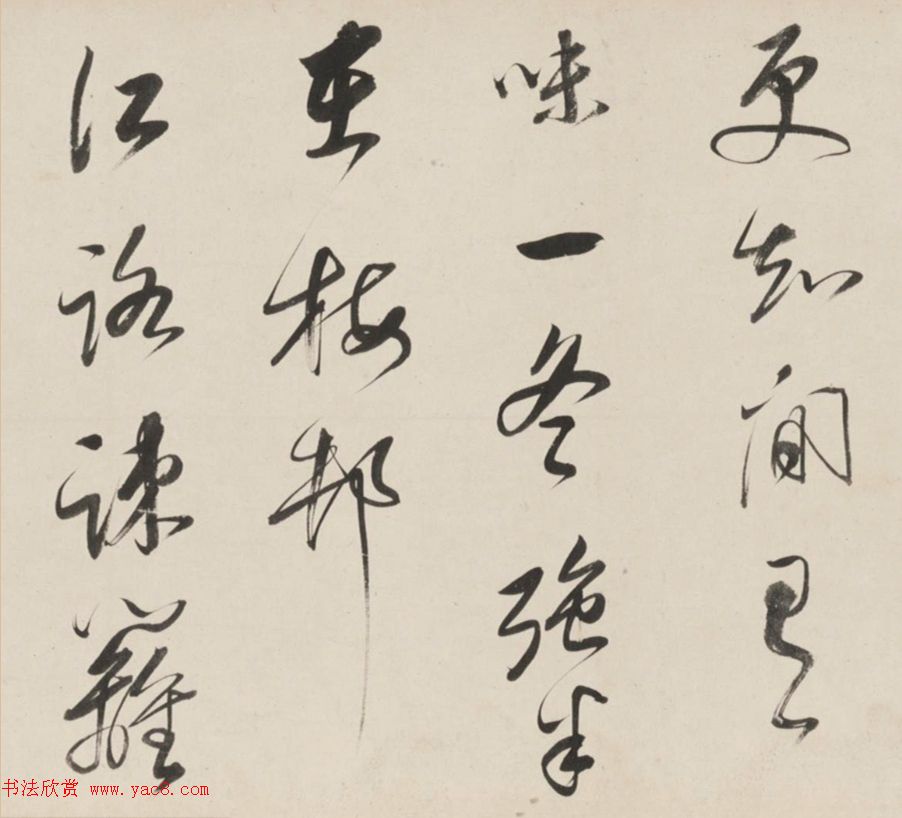 更知閒有
味一冬強半
在梅邨
江路疎籬
书法欣赏 www.yac8.com